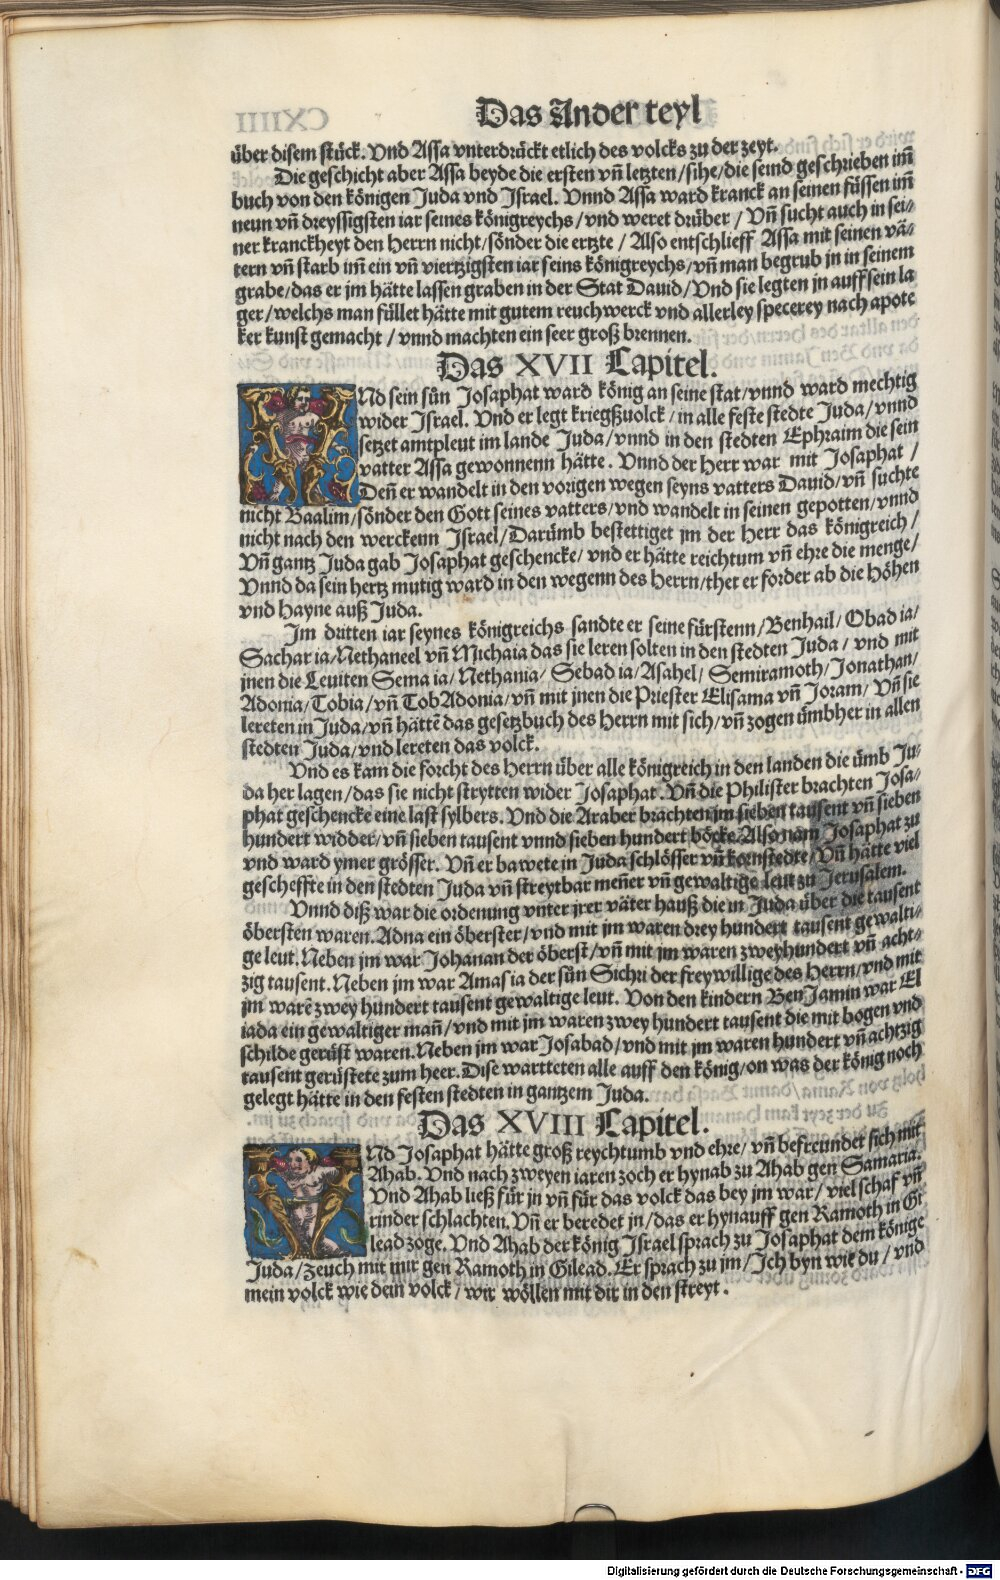 Das Ander teyl
über disem stück. Vnd Assa vnterdrückt etlich des volcks zu der zeyt.
Die geschicht aber Assa beyde die ersten vñ letzten/sihe/die seind geschrieben im̃
buch von den königen Juda vnd Israel. Vnnd Assa ward kranck an seinen füssen im̃
neun vñ dreyssigsten iar seines königreychs/vnd weret drüber/Vñ sucht auch in sei-
ner kranckheyt den Herrn nicht/sönder die ertzte/Also entschlieff Assa mit seinen vä-
tern vñ starb im̃ ein vñ viertzigsten iar seins königreychs/vñ man begrub jn in seinem
grabe/das er jm hätte lassen graben in der Stat Dauid/Vnd sie legten jn auff sein la
ger/welchs man füllet hätte mit gutem reuchwerck vnd allerley specerey nach apote
ker kunst gemacht/vnnd machten ein seer groß brennen.
Das XVII Capitel.
VNd sein sün Josaphat ward könig an seine stat/vnnd ward mechtig
wider Israel. Vnd er legt kriegßuolck/in alle feste stedte Juda/vnnd
setzet amptleut im lande Juda/vnnd in den stedten Ephraim die sein
vatter Assa gewonnenn hätte. Vnnd der Herr war mit Josaphat/
Deñ er wandelt in den vorigen wegen seyns vatters Dauid/vñ suchte
nicht Baalim/sönder den Gott seines vatters/vnd wandelt in seinen gepotten/vnnd
nicht nach den werckenn Israel/Darümb bestettiget jm der Herr das königreich/
Vñ gantz Juda gab Josaphat geschencke/vnd er hätte reichtum vñ ehre die menge/
Vnnd da sein hertz mutig ward in den wegenn des Herrn/thet er forder ab die Höhen
vnd Hayne auß Juda.
Im dritten iar seynes königreichs sandte er seine fürstenn/Benhail/Obad ia/
Sachar ia/Nethaneel vñ Michaia das sie leren solten in den stedten Juda/vnd mit
jnen die Leuiten Sema ia/Nethania/Sebad ia/Asahel/Semiramoth/Jonathan/
Adonia/Tobia/vñ TobAdonia/vñ mit jnen die Priester Elisama vñ Joram/Vñ sie
lereten in Juda/vñ hättẽ das gesetzbuch des Herrn mit sich/vñ zogen ümbher in allen
stedten Juda/vnd lereten das volck.
Vnd es kam die forcht des Herrn über alle königreich in den landen die ümb Ju-
da her lagen/das sie nicht strytten wider Josaphat. Vñ die Philister brachten Josa-
phat geschencke eine last sylbers. Vnd die Araber brachten jm sieben tausent vñ sieben
hundert widder/vñ sieben tausent vnnd sieben hundert böcke. Also nam Josaphat zu
vnd ward ymer grösser. Vñ er bawete in Juda schlösser vñ kornstedte/Vñ hätte viel
gescheffte in den stedten Juda vñ streytbar meñer vñ gewaltige leut zu Jerusalem.
Vnnd diß war die ordenung vnter jrer väter hauß die in Juda über die tausent
öbersten waren. Adna ein öberster/vnd mit jm waren drey hundert tausent gewalti-
ge leut. Neben jm war Johanan der öberst/vñ mit jm waren zweyhundert vñ acht-
zig tausent. Neben jm war Amas ia der sün Sichri der freywillige des Herrn/vnd mit
jm warẽ zwey hundert tausent gewaltige leut. Von den kindern BenJamin war El
iada ein gewaltiger mañ/vnd mit jm waren zwey hundert tausent die mit bogen vnd
schilde gerüst waren. Neben jm war Josabad/vnd mit jm waren hundert vñ achtzig
tausent gerüstete zum heer. Dise wartteten alle auff den könig/on was der könig noch
gelegt hätte in den festen stedten in gantzem Juda.
Das XVIII Capitel.
VNd Josaphat hätte groß reychtumb vnd ehre/vñ befreundet sich mit
Ahab. Vnd nach zweyen iaren zoch er hynab zu Ahab gen Samaria.
Vnd Ahab ließ für jn vñ für das volck das bey jm war/viel schaf vñ
rinder schlachten. Vñ er beredet jn/das er hynauff gen Ramoth in Gi
lead zoge. Vnd Ahab der könig Israel sprach zu Josaphat dem könige
Juda/Zeuch mit mir gen Ramoth in Gilead. Er sprach zu jm/Ich byn wie du/vnd
mein volck wie dein volck/wir wöllen mit dir in den streyt.
Digitalisierung gefördert durch die Deutsche Forschungsgemeinschaft - DFG